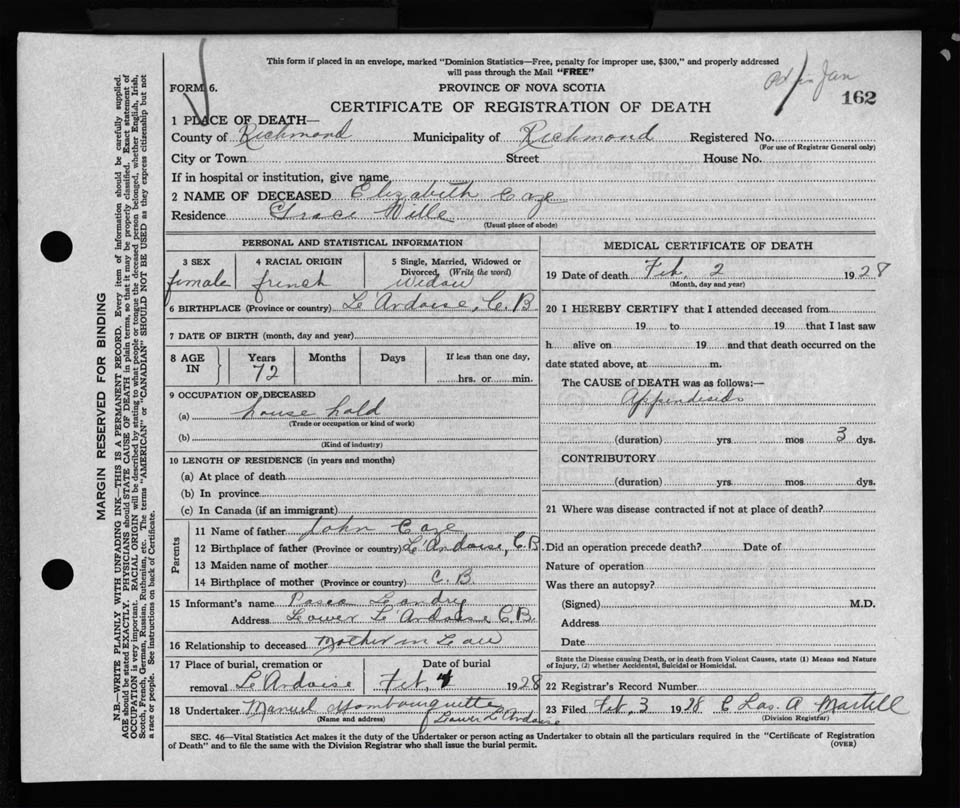 This form if placed in an envelope, marked "Dominion Statistics—Free, penalty for improper use, $300," and properly addressed
will pass through the Mail "FREE"
FORM 6.
PROVINCE OF NOVA SCOTIA
Jan
162
CERTIFICATE OF REGISTRATION OF DEATH
1 PLACE OF DEATH—
County of Richmond Municipality of Richmond Registered No.
(For use of Registrar General only)
City or Town Street House No.
If in hospital or institution, give name
2 NAME OF DECEASED Elizabeth Coze
Residence Grace Ville
(Usual place of abode)
PERSONAL AND STATISTICAL INFORMATION
3 SEX 4 RACIAL ORIGIN 5 Single, Married, Widowed or
Divorced, (Write the word)
female french Widow
6 BIRTHPLACE (Province or country) L'Ardoise, C.B
7 DATE OF BIRTH (month, day and year)
8 AGE IN Years Months Days If less than one day,
72 hrs. or min.
9 OCCUPATION OF DECEASED
(a) house hold
(Trade or occupation or kind of work)
(b)
(Kind of industry)
10 LENGTH OF RESIDENCE (in years and months)
(a) At place of death
(b) In province
(c) In Canada (if an immigrant)
Parents
11 Name of father John Coze
12 Birthplace of father (Province or country) L'Ardoise, C.B.
13 Maiden name of mother
14 Birthplace of mother (Province or country) C.B.
15 Informant's name Landry
Address Lower L'Ardoise C.B.
16 Relationship to deceased Mother in Law
17 Place of burial, cremation or Date of burial
removal L'Ardoise Feb. 4 1928
18 Undertaker Manuel Mombourquette
(Name and address) Lower L'Ardoise
MEDICAL CERTIFICATE OF DEATH
19 Date of death Feb. 2 1928
(Month, day and year)
20 I HEREBY CERTIFY that I attended deceased from
19 to 19 that I last saw
h alive on 19 and that death occurred on the
date stated above, at m.
The CAUSE of DEATH was as follows:—
Appendisids
(duration) yrs mos 3 dys.
CONTRIBUTORY
(duration) yrs mos dys.
21 Where was disease contracted if not at place of death?
Did an operation precede death? Date of
Nature of operation
Was there an autopsy?
(Signed) M.D.
Address
Date
State the Disease causing Death, or in death from Violent Causes, state (1) Means and Nature
of Injury, (2) whether Accidental, Suicidal or Homicidal.
22 Registrar's Record Number
23 Filed Feb. 3 1928 A Martell
(Division Registrar)
SEC. 46—Vital Statistics Act makes it the duty of the Undertaker or person acting as Undertaker to obtain all the particulars required in the "Certificate of Registration
of Death" and to file the same with the Division Registrar who shall issue the burial permit.
(OVER)
MARGIN RESERVED FOR BINDING
N.B.—WRITE PLAINLY WITH UNFADING INK—THIS IS A PERMANENT RECORD. Every item of information should be carefully supplied.
AGE should be stated EXACTLY. PHYSICIANS should STATE CAUSE OF DEATH in plain terms, so that it may be properly classified. Exact statement of
OCCUPATION is very important. RACIAL ORIGIN will be described by stating to what people or tongue the deceased person belonged, whether English, Irish,
Scotch, French, German, Russian, Ruthenian, etc. The terms "AMERICAN" or "CANADIAN" SHOULD NOT BE USED as they express citizenship but not
a race or people. See instructions on back of Certificate.